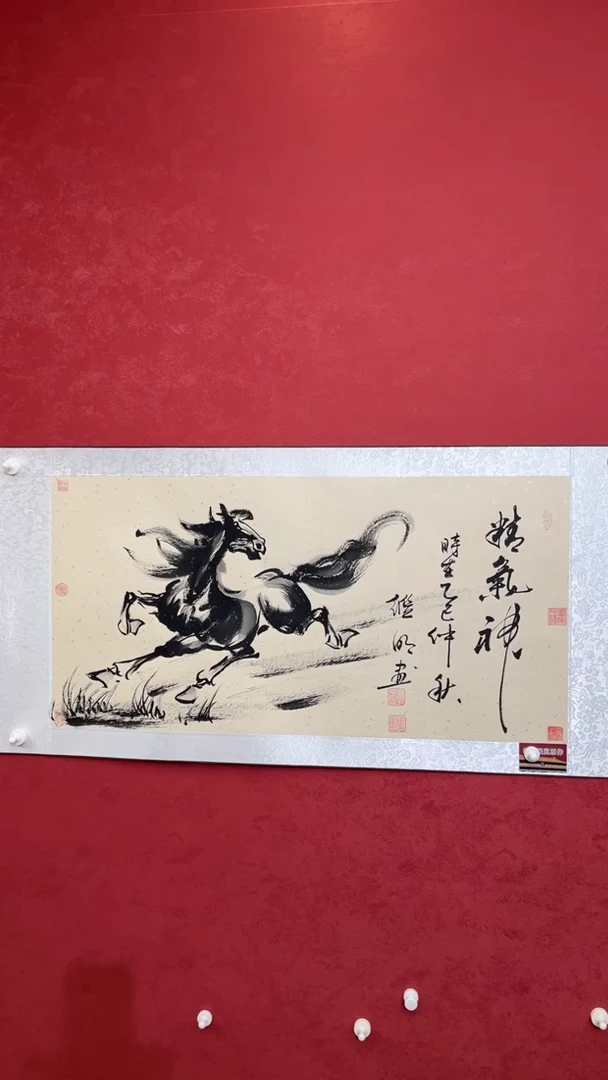 精氣神
時在乙巳仲秋
继明画